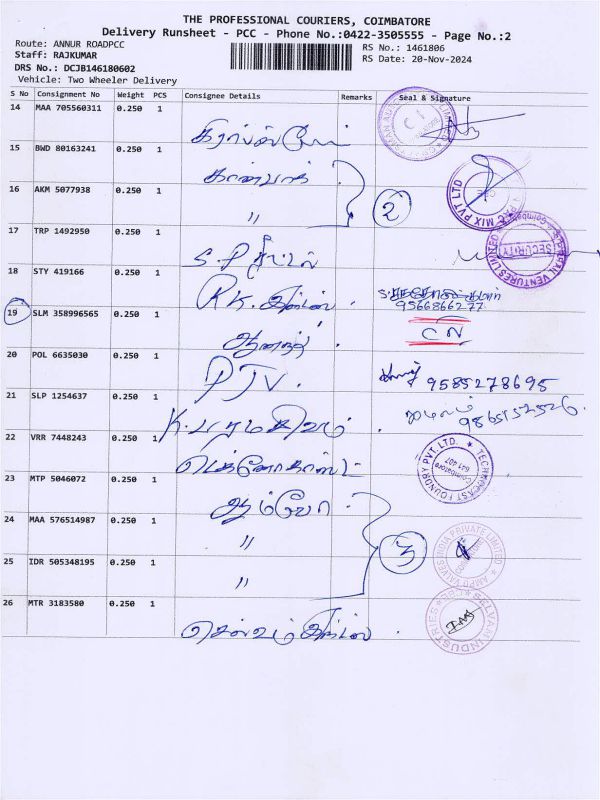 THE PROFESSIONAL COURIERS, COIMBATORE
Delivery Runsheet - PCC - Phone No.:0422-3505555 - Page No.:2
Route: ANNUR ROADPCC
RS No.: 1461806
Staff: RAJKUMAR
RS Date: 20-Nov-2024
DRS No.: DCJB146180602
Vehicle: Two Wheeler Delivery
S No Consignment No Weight PCS Consignee Details Remarks Seal & Signature
14 MAA 705560311 0.250 1
15 BWD 80163241 0.250 1
16 AKM 5077938 0.250 1 " 2
MIX PVT LTD
17 TRP 1492950 0.250 1 S.P
VENTURES LIMITED SECURITY
18 STY 419166 0.250 1 RK.
9566866277
19 SLM 358996565 0.250 1 ஆனந்த் CN
20 POL 6635030 0.250 1 PTV. 9585278695
21 SLP 1254637 0.250 1 K. பரமசிவம் 9865152526
22 VRR 7448243 0.250 1 டெக்னோகாஸ்ட்
TECHNOCAST FOUNDRY PVT. LTD. Coimbatore 641 407
23 MTP 5046072 0.250 1 ஆம்போ
24 MAA 576514987 0.250 1 " 3
AMPO VALVES INDIA PRIVATE LIMITED
25 IDR 505348195 0.250 1 "
26 MTR 3183580 0.250 1 செல்வம்
SELVAM INDUSTRIES